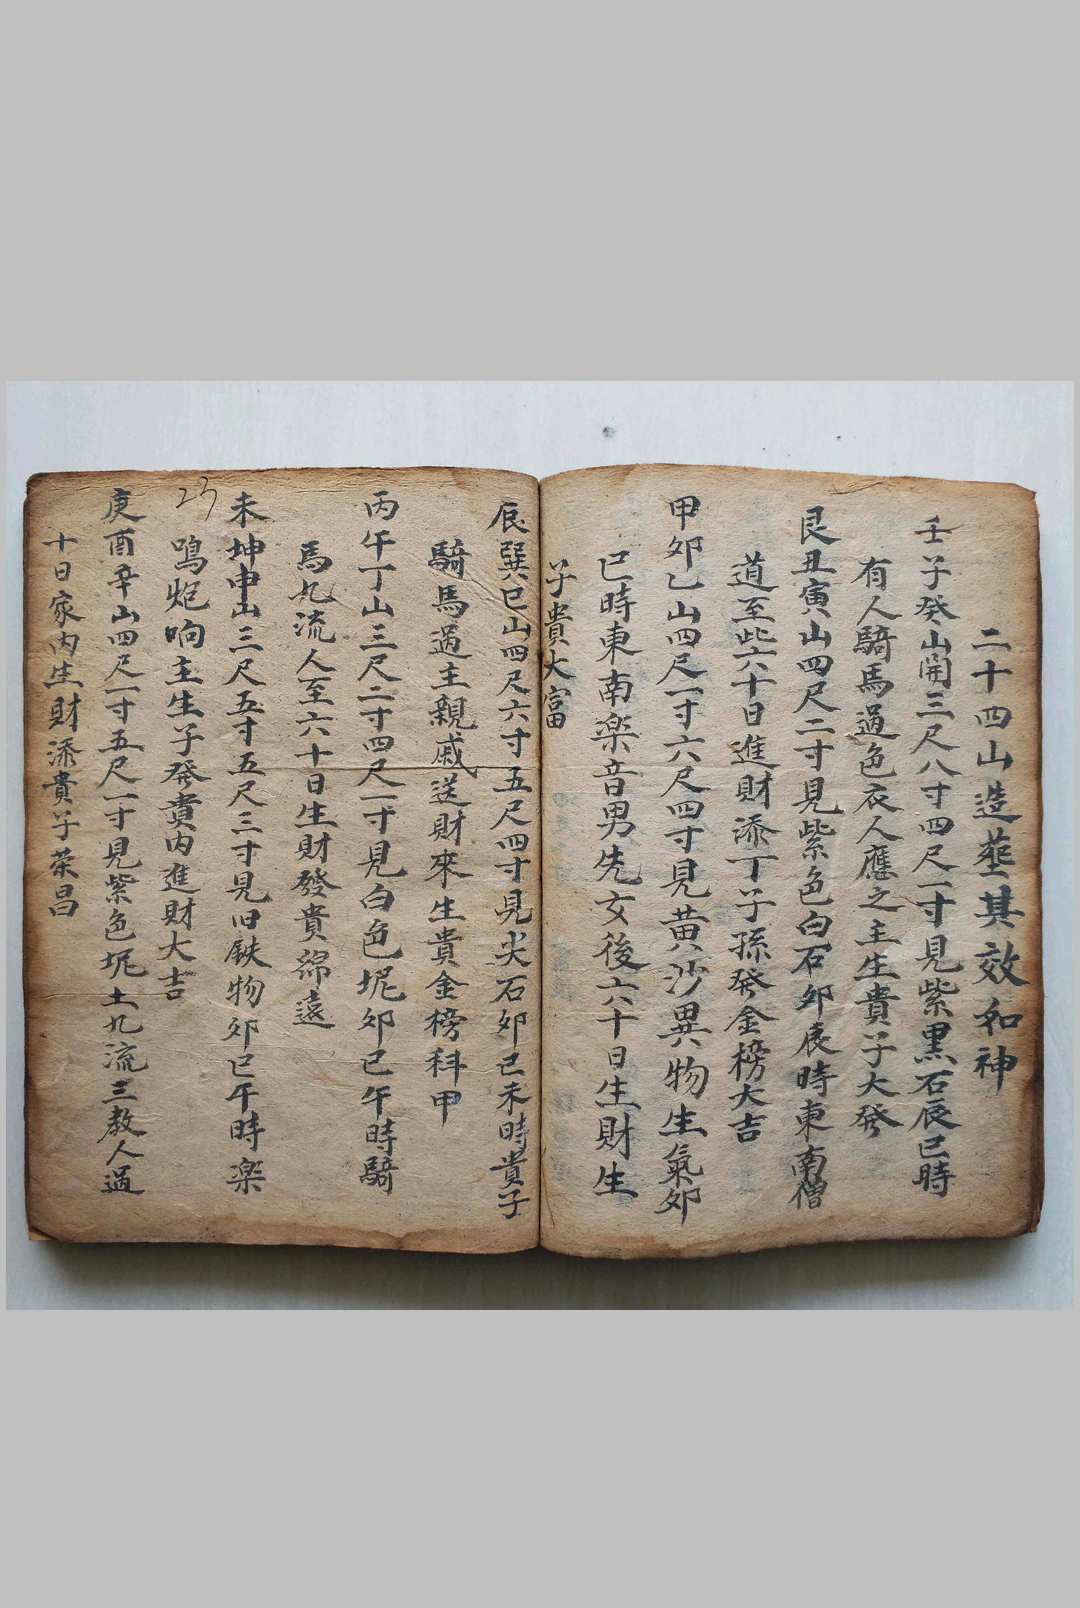 二十四山造塟其效和神
壬子癸山開三尺八寸四尺一寸見紫黑石辰巳時
有人騎馬過色衣人應之主生貴子大発
艮丑寅山四尺二寸見紫色白石卯辰時東南僧
道至此六十日進財添丁子孫発金榜大吉
甲卯乙山四尺一寸六尺四寸見黄沙異物生氣卯
巳時東南楽音男先女後六十日生財生
子貴大富
辰巽巳山四尺六寸五尺四寸見尖石卯巳未時貴子
騎馬過主親戚送財來生貴金榜科甲
丙午丁山三尺二寸四尺一寸見白色坭卯巳午時騎
馬九流人至六十日生財發貴綿遠
未坤申山三尺五寸五尺三寸見旧鉄物卯巳午時楽
鳴炮响主生子発貴内進財大吉
23
庚酉辛山四尺一寸五尺一寸見紫色坭土九流三教人過
十日家内生財添貴子荣昌